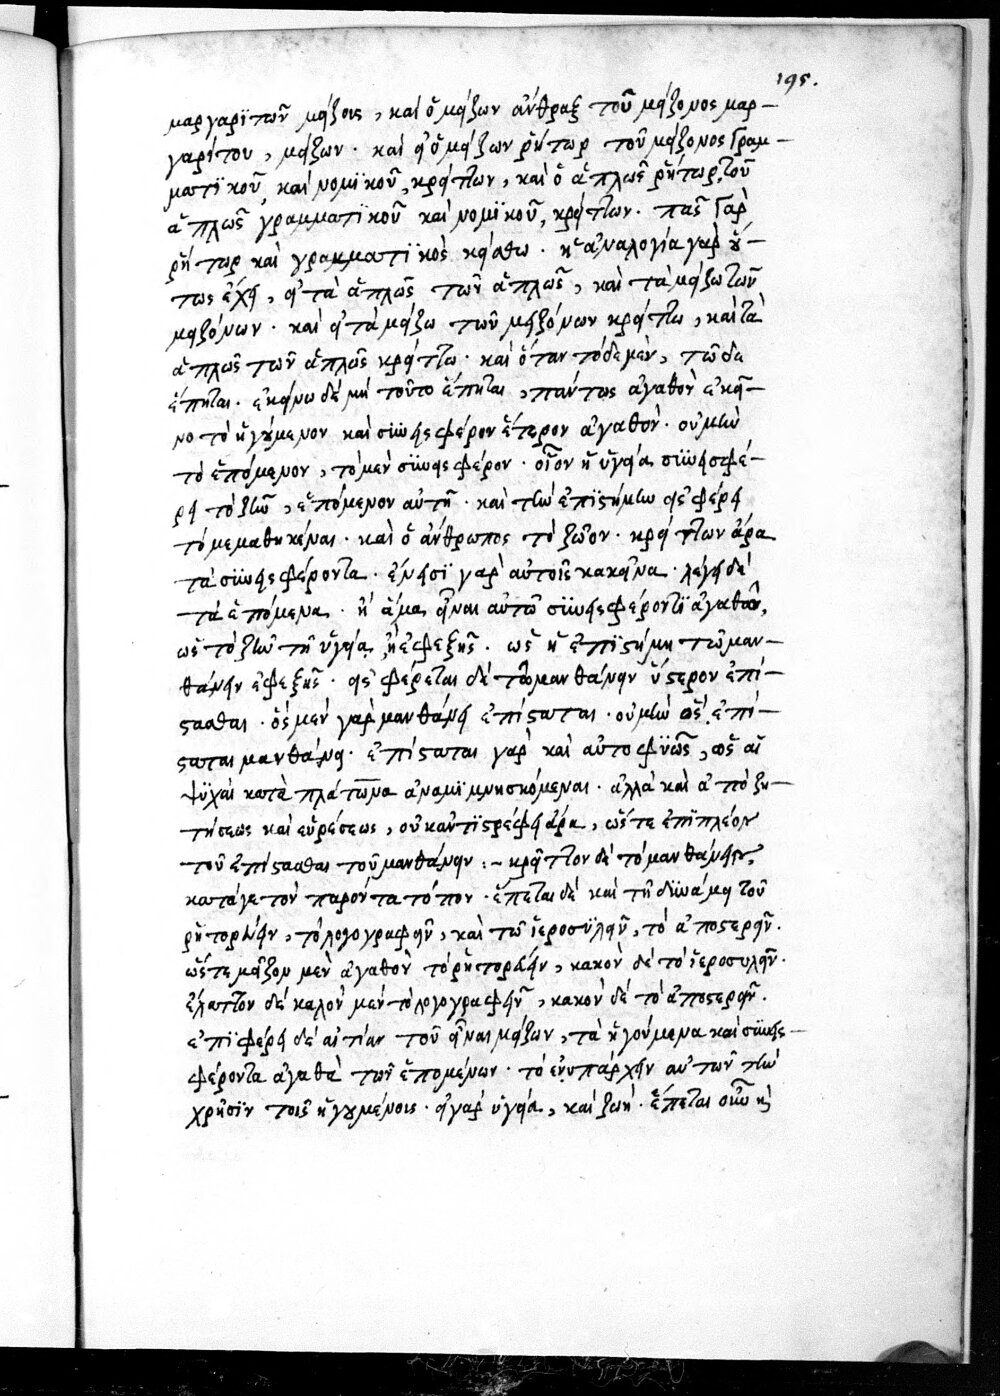 195.
μαργαριτῶν μείζους, καὶ ὁ μείζων ἄνθραξ τοῦ μείζονος μαρ-
γαρίτου, μείζων. καὶ εἰ ὁ μείζων ῥήτωρ τοῦ μείζονος γραμ-
ματικοῦ καὶ νομικοῦ, κρείττων, καὶ ὁ ἁπλῶς ῥήτωρ, τοῦ
ἁπλῶς γραμματικοῦ καὶ νομικοῦ, κρείττων. πᾶς γὰρ
ῥήτωρ καὶ γραμματικὸς κἀγω. ἡ ἀναλογία γὰρ οὕ-
τως ἔχει, εἰ τὰ ἁπλῶς τῶν ἁπλῶς, καὶ τὰ μείζω τῶν
μειζόνων. καὶ εἰ τὰ μείζω τῶν μειζόνων κρείττω, καὶ τὰ
ἁπλῶς τῶν ἁπλῶς κρείττω. καὶ ὅταν τόδε μὲν, τῶδε
ἕπηται. ἐκείνω δὲ μὴ τοῦτο ἕπηται, πάντως ἀγαθὸν ἐκεῖ-
νο τὸ ἡγούμενον καὶ συνεισφέρον ἕτερον ἀγαθὸν. οὐ μὴν
τὸ ἑπόμενον, τὸ μὲν συνεισφέρον. οἷον ἡ ὑγεία συνεισφέ-
ρει τὸ ζῆν, ἑπόμενον αὐτῆ. καὶ τὴν ἐπιστήμην εἰσφέρει
τὸ μεμαθηκέναι. καὶ ὁ ἄνθρωπος τὸ ζῶον. κρείττων ἄρα
τὰ συνεισφέροντα. ἔνεισι γὰρ αὐτοῖς κἀκεῖνα. λέγει δὲ
τὰ ἑπόμενα. ἢ ἅμα εἶναι αὐτῶ συνεισφέροντι ἀγαθῶν,
ὡς τὸ ζῆν τῆ ὑγεία, ἢ ἐφεξῆς. ὡς ἡ ἐπιστήμη τῶ μαν-
θάνειν ἐφεξῆς. εἰσφέρεται δὲ τῶ μανθάνειν ὕστερον ἐπί-
στασθαι. ὃς μὲν γὰρ μανθάνει ἐπίσταται. οὐ μὴν ὃς ἐπί-
σταται μανθάνει. ἐπίσταται γὰρ καὶ αὐτοφυῶς, ὡς αἱ
ψυχαὶ κατὰ πλάτωνα ἀναμιμνησκόμεναι. ἀλλὰ καὶ ἀπὸ ζη-
τήσεως καὶ εὑρέσεως, οὐκ ἀντιστρέφει ἄρα, ὥστε ἐπιπλέον
τοῦ ἐπίστασθαι τοῦ μανθάνειν :~ κρεῖττον δὲ τὸ μανθάνειν,
κατάγε τὸν παρόντα τόπον. ἕπεται δὲ καὶ τῆ δυνάμει τοῦ
ῥητορεύειν, τὸ λογογραφεῖν, καὶ τῶ ἱεροσυλεῖν, τὸ ἀποστερεῖν.
ὥστε μεῖζον μὲν ἀγαθὸν τὸ ῥητορεύειν, κακὸν δὲ τὸ ἱεροσυλεῖν.
ἔλαττον δὲ καλὸν μὲν τὸ λογογραφεῖν, κακὸν δὲ τὸ ἀποστερεῖν.
ἐπιφέρει δὲ αἰτίαν τοῦ εἶναι μείζων, τὰ ἡγούμενα καὶ συνεισ-
φέροντα ἀγαθὰ τῶν ἑπομένων. τὸ ἐνυπάρχειν αὐτῶν τὴν
χρῆσιν τοῖς ἡγουμένοις. εἰ γὰρ ὑγεία, καὶ ζωή. ἕπεται οὖν ἡ